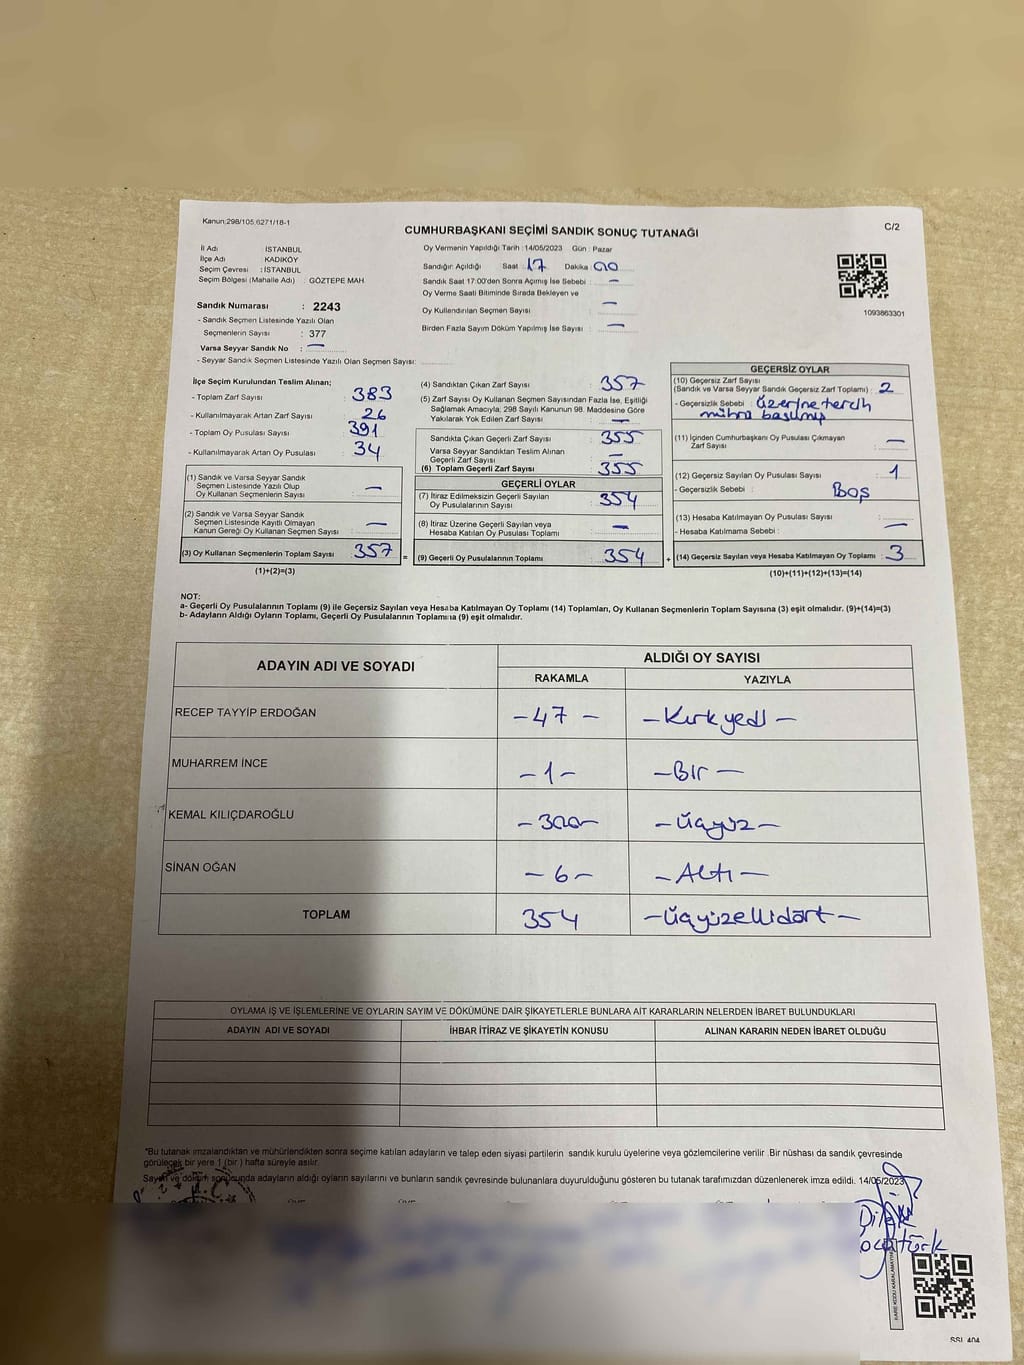 Kanun:298/105,6271/18-1
C/2
CUMHURBAŞKANI SEÇİMİ SANDIK SONUÇ TUTANAĞI
İl Adı : İSTANBUL
İlçe Adı : KADIKÖY
Seçim Çevresi : İSTANBUL
Seçim Bölgesi (Mahalle Adı) : GÖZTEPE MAH
Sandık Numarası : 2243
- Sandık Seçmen Listesinde Yazılı Olan
Seçmenlerin Sayısı : 377
Varsa Seyyar Sandık No : —
- Seyyar Sandık Seçmen Listesinde Yazılı Olan Seçmen Sayısı:
Oy Vermenin Yapıldığı Tarih :14/05/2023 Gün : Pazar
Sandığın Açıldığı Saat : 17 Dakika : 00
Sandık Saat 17:00'den Sonra Açımış İse Sebebi : —
Oy Verme Saati Bitiminde Sırada Bekleyen ve
Oy Kullendırılan Seçmen Sayısı : —
Birden Fazla Sayım Döküm Yapılmış İse Sayısı : —
1093863301
İlçe Seçim Kurulundan Teslim Alınan;
- Toplam Zarf Sayısı : 383
- Kullanılmayarak Artan Zarf Sayısı : 26
- Toplam Oy Pusulası Sayısı : 391
- Kullanılmayarak Artan Oy Pusulası : 34
(1) Sandık ve Varsa Seyyar Sandık
Seçmen Listesinde Yazılı Olup
Oy Kullanan Seçmenlerin Sayısı : —
(2) Sandık ve Varsa Seyyar Sandık
Seçmen Listesinde Kayıtlı Olmayan
Kanun Gereği Oy Kullanan Seçmen Sayısı : —
(3) Oy Kullanan Seçmenlerin Toplam Sayısı : 357 =
(1)+(2)=(3)
(4) Sandıktan Çıkan Zarf Sayısı : 357
(5) Zarf Sayısı Oy Kullanan Seçmen Sayısından Fazla İse, Eşitliği
Sağlamak Amacıyla; 298 Sayılı Kanunun 98. Maddesine Göre
Yakılarak Yok Edilen Zarf Sayısı : —
Sandıkta Çıkan Geçerli Zarf Sayısı : 355
Varsa Seyyar Sandıktan Teslim Alınan
Geçerli Zarf Sayısı : —
(6) Toplam Geçerli Zarf Sayısı : 355
GEÇERLİ OYLAR
(7) İtiraz Edilmeksizin Geçerli Sayılan
Oy Pusulalarının Sayısı : 354
(8) İtiraz Üzerine Geçerli Sayılan veya
Hesaba Katılan Oy Pusulası Toplamı : —
(9) Geçerli Oy Pusulalarının Toplamı : 354 +
GEÇERSİZ OYLAR
(10) Geçersiz Zarf Sayısı
(Sandık ve Varsa Seyyar Sandık Geçersiz Zarf Toplamı) : 2
- Geçersizlik Sebebi : üzerine tercih
mührü basılmış
(11) İçinden Cumhurbaşkanı Oy Pusulası Çıkmayan
Zarf Sayısı : —
(12) Geçersiz Sayılan Oy Pusulası Sayısı : 1
- Geçersizlik Sebebi : Boş
(13) Hesaba Katılmayan Oy Pusulası Sayısı :
- Hesaba Katılmama Sebebi : —
(14) Geçersiz Sayılan veya Hesaba Katılmayan Oy Toplamı : 3
(10)+(11)+(12)+(13)=(14)
NOT:
a- Geçerli Oy Pusulalarının Toplamı (9) ile Geçersiz Sayılan veya Hesaba Katılmayan Oy Toplamı (14) Toplamları, Oy Kullanan Seçmenlerin Toplam Sayısına (3) eşit olmalıdır. (9)+(14)=(3)
b- Adayların Aldığı Oyların Toplamı, Geçerli Oy Pusulalarının Toplamına (9) eşit olmalıdır.
ADAYIN ADI VE SOYADI ALDIĞI OY SAYISI
RAKAMLA YAZIYLA
RECEP TAYYİP ERDOĞAN -47- -Kırkyedi-
MUHARREM İNCE -1- -Bir-
KEMAL KILIÇDAROĞLU -300- -üçyüz-
SİNAN OĞAN -6- -Altı-
TOPLAM 354 -üçyüzellidört-
OYLAMA İŞ VE İŞLEMLERİNE VE OYLARIN SAYIM VE DÖKÜMÜNE DAİR ŞİKAYETLERLE BUNLARA AİT KARARLARIN NELERDEN İBARET BULUNDUKLARI
ADAYIN ADI VE SOYADI İHBAR İTİRAZ VE ŞİKAYETİN KONUSU ALINAN KARARIN NEDEN İBARET OLDUĞU
*Bu tutanak imzalandıktan ve mühürlendikten sonra seçime katılan adayların ve talep eden siyasi partilerin sandık kurulu üyelerine veya gözlemcilerine verilir .Bir nüshası da sandık çevresinde
görülecek bir yere 1 (bir ) hafta süreyle asılır.
Sayım ve döküm sonucunda adayların aldığı oyların sayılarını ve bunların sandık çevresinde bulunanlara duyurulduğunu gösteren bu tutanak tarafımızdan düzenlenerek imza edildi. 14/05/2023
Dilek